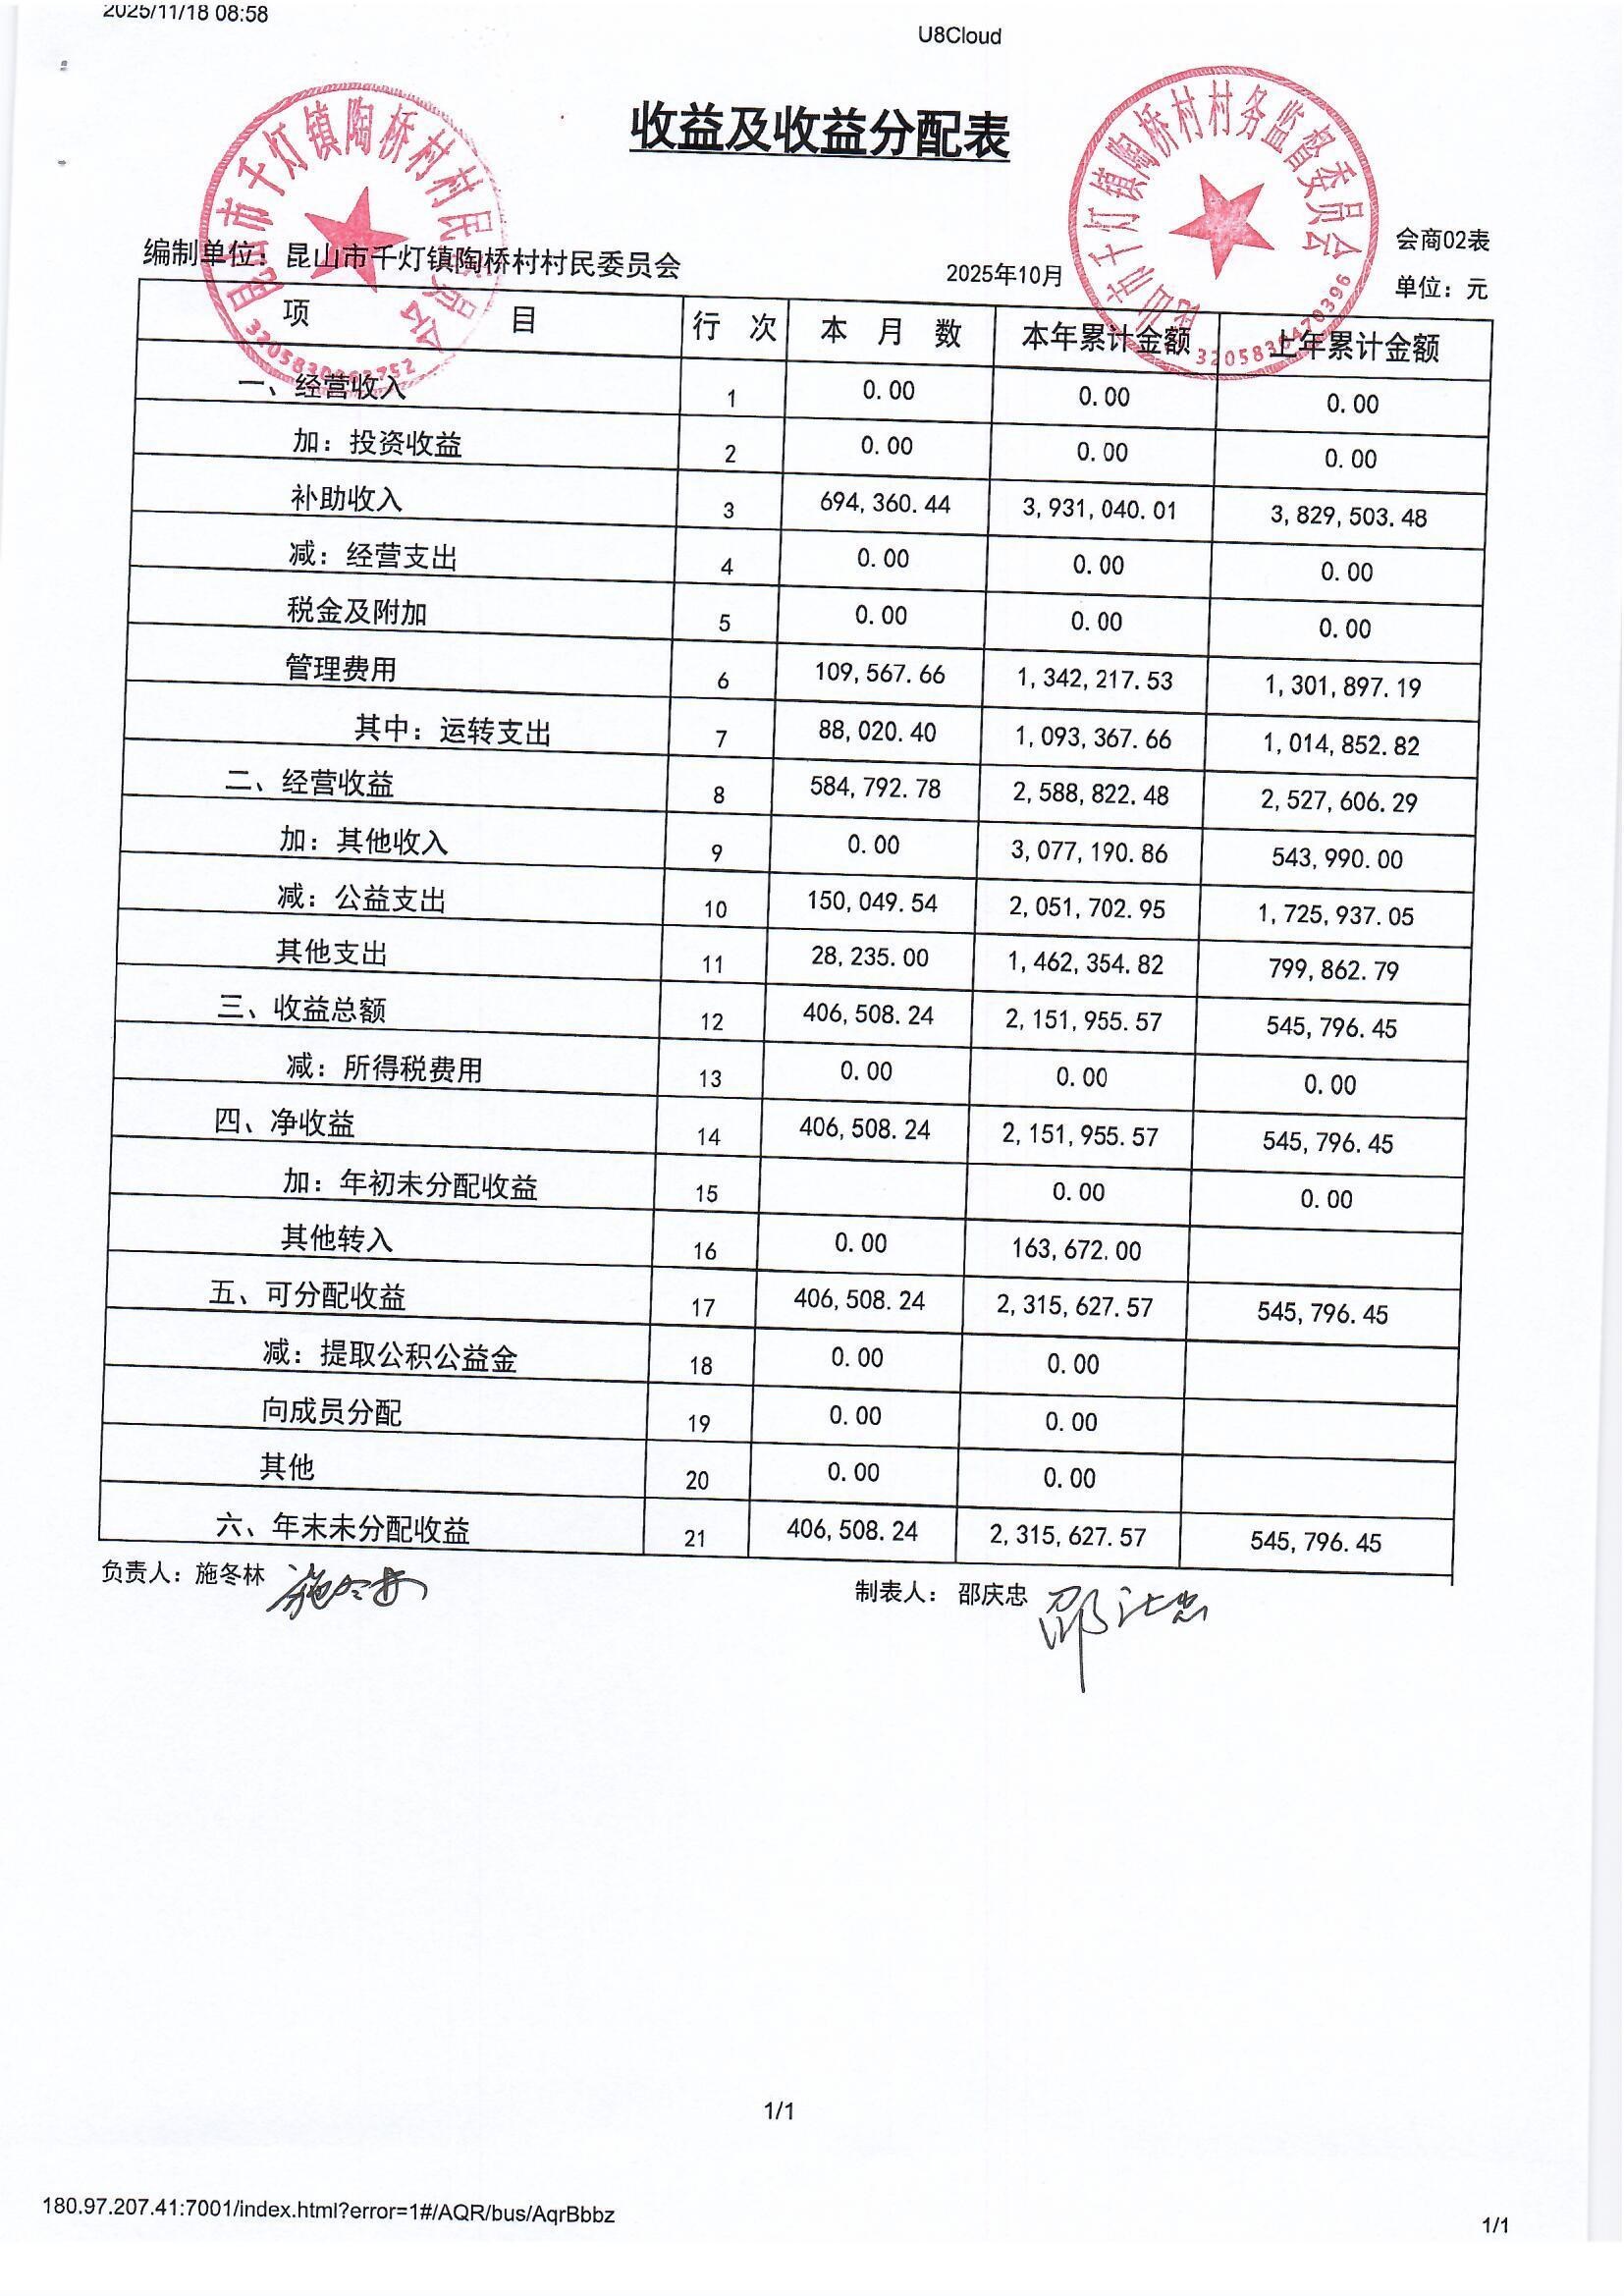 2025/11/18 08:58
U8Cloud
收益及收益分配表
昆山市千灯镇陶桥村村民委员会
昆山市千灯镇陶桥村村务监督委员会
3205830470396
会商02表
编制单位：昆山市千灯镇陶桥村村民委员会 2025年10月 单位：元
项 目 行 次 本 月 数 本年累计金额 上年累计金额
一、经营收入 1 0.00 0.00 0.00
加：投资收益 2 0.00 0.00 0.00
补助收入 3 694,360.44 3,931,040.01 3,829,503.48
减：经营支出 4 0.00 0.00 0.00
税金及附加 5 0.00 0.00 0.00
管理费用 6 109,567.66 1,342,217.53 1,301,897.19
其中：运转支出 7 88,020.40 1,093,367.66 1,014,852.82
二、经营收益 8 584,792.78 2,588,822.48 2,527,606.29
加：其他收入 9 0.00 3,077,190.86 543,990.00
减：公益支出 10 150,049.54 2,051,702.95 1,725,937.05
其他支出 11 28,235.00 1,462,354.82 799,862.79
三、收益总额 12 406,508.24 2,151,955.57 545,796.45
减：所得税费用 13 0.00 0.00 0.00
四、净收益 14 406,508.24 2,151,955.57 545,796.45
加：年初未分配收益 15 0.00 0.00
其他转入 16 0.00 163,672.00
五、可分配收益 17 406,508.24 2,315,627.57 545,796.45
减：提取公积公益金 18 0.00 0.00
向成员分配 19 0.00 0.00
其他 20 0.00 0.00
六、年末未分配收益 21 406,508.24 2,315,627.57 545,796.45
负责人：施冬林 施冬林 制表人：邵庆忠 邵庆忠
1/1
180.97.207.41:7001/index.html?error=1#/AQR/bus/AqrBbbz
1/1